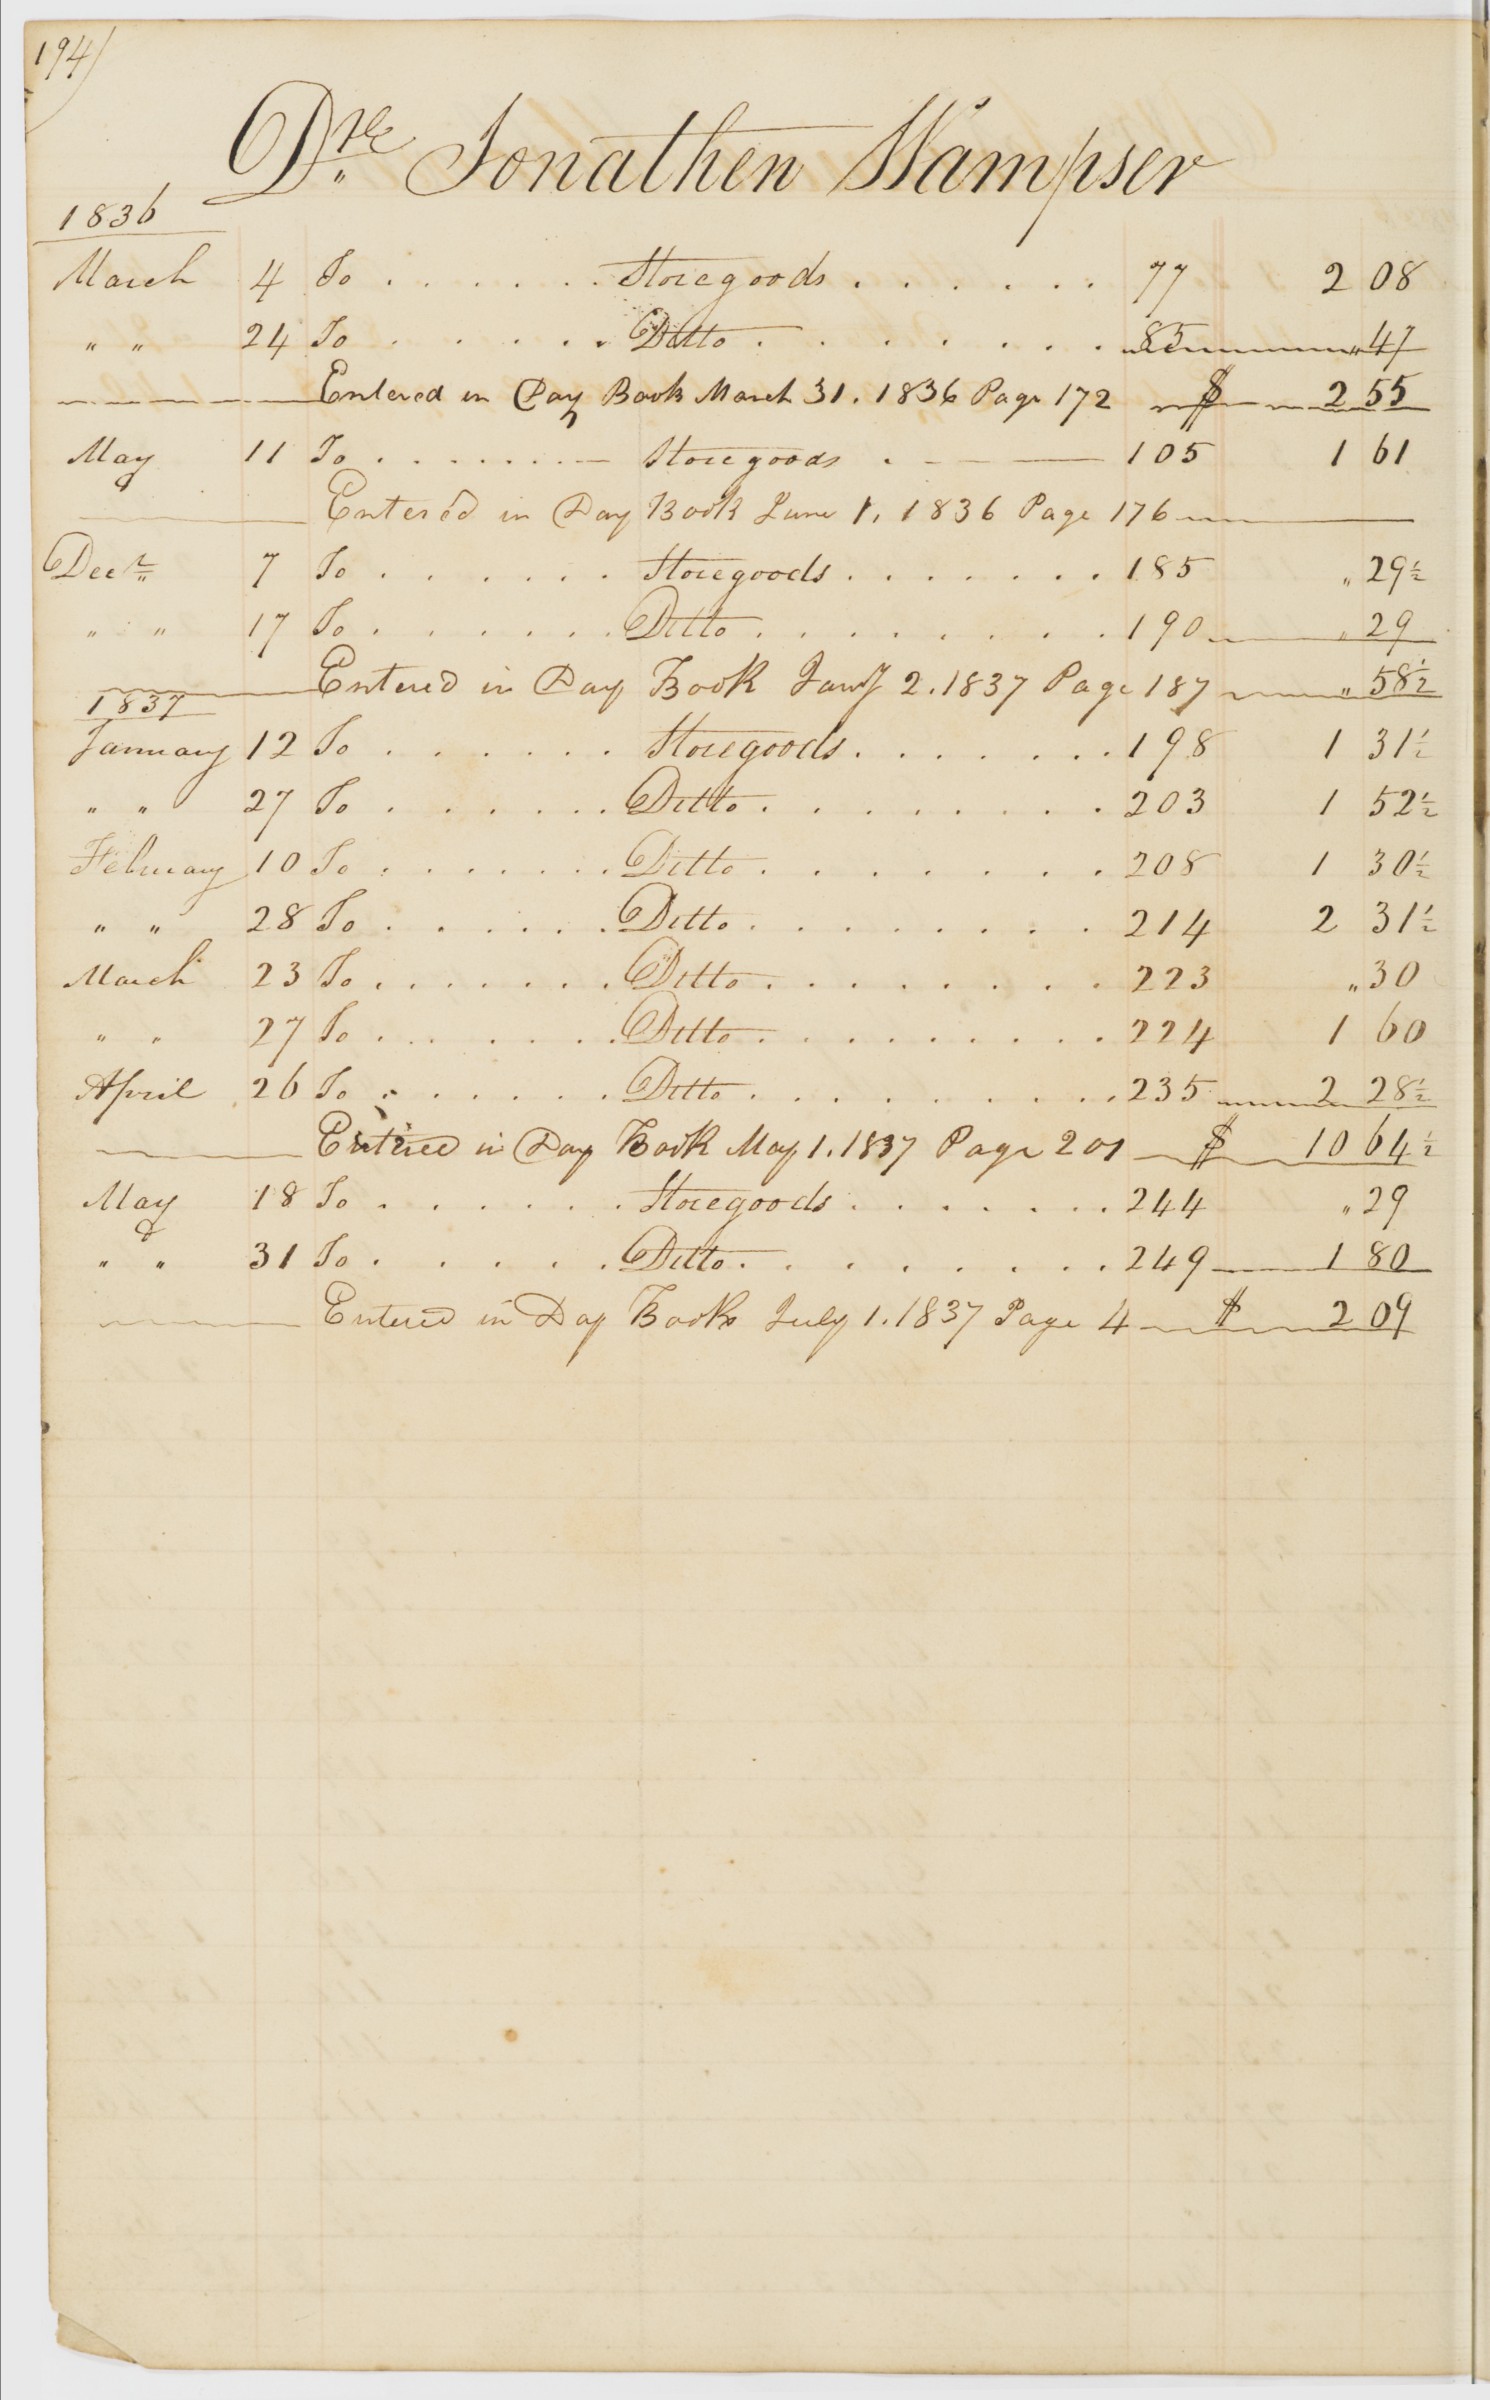 194)
Dr. Jonathen Wampser
1836
March 4 To . . . . . . Storegoods . . . . . . 77 2 08
" " 24 To . . . . . Ditto . . . . . . . 85 " 47
Entered in Day Book March 31. 1836 Page 172 $ 2 55
May 11 To . . . . . . Storegoods . 105 1 61
Entered in Day Book June 1. 1836 Page 176
Decr 7 To . . . . . . Storegoods . . . . . . 185 " 29½
" " 17 To . . . . . . Ditto . . . . . . . 190 " 29
Entered in Day Book Jany 2. 1837 Page 187 " 58½
1837
January 12 To . . . . . . Storegoods . . . . . . 198 1 31½
" " 27 To . . . . . . Ditto . . . . . . . 203 1 52½
February 10 To . . . . . . Ditto . . . . . . . 208 1 30½
" " 28 To . . . . . . Ditto . . . . . . . 214 2 31½
March 23 To . . . . . . Ditto . . . . . . . 223 " 30
" " 27 To . . . . . . Ditto . . . . . . . 224 1 60
April 26 To . . . . . . Ditto . . . . . . . 235 2 28½
Entered in Day Book May 1. 1837 Page 201 $ 10 64½
May 18 To . . . . . . Storegoods . . . . . . 244 " 29
" " 31 To . . . . . . Ditto . . . . . . . 249 1 80
Entered in Day Book July 1. 1837 Page 4 $ 2 09